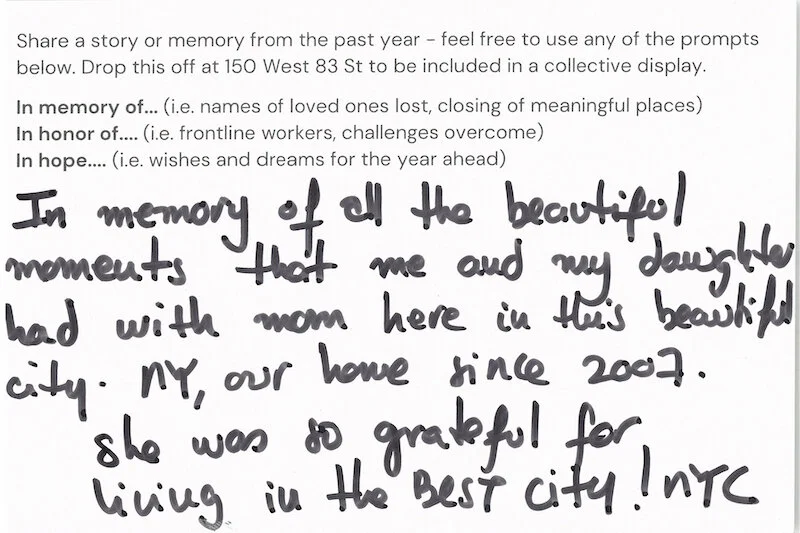 Share a story or memory from the past year – feel free to use any of the prompts
below. Drop this off at 150 West 83 St to be included in a collective display.
In memory of... (i.e. names of loved ones lost, closing of meaningful places)
In honor of.... (i.e. frontline workers, challenges overcome)
In hope.... (i.e. wishes and dreams for the year ahead)
In memory of all the beautiful
moments that me and my daughter
had with mom here in this beautiful
city. NY, our home since 2007.
she was so grateful for
living in the BEST city! NYC